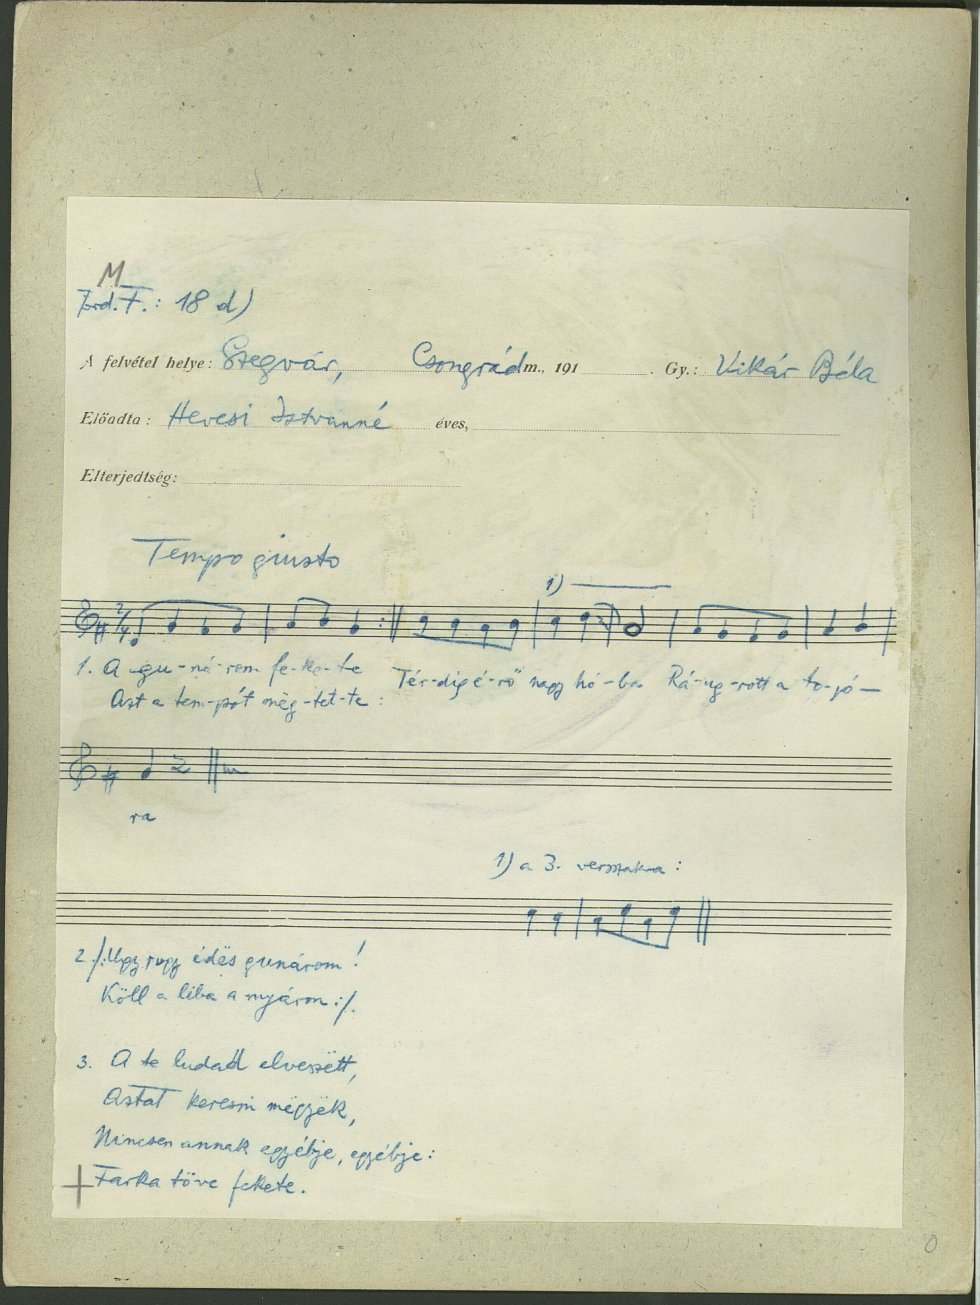 M
F.: 18 d)
A felvétel helye: Szegvár, Csongrád m., 191 . Gy.: Vikár Béla
Előadta: Hevesi Istvánné éves,
Elterjedtség:
Tempo giusto
1)
2/4
1. A gu-ná-rom fe-ke-te Tér-dig é-rő nagy hó-ba Rá-ug-rott a to-jó-
Azt a tem-pót még-tet-te:
ra
1) a 3. versszakra:
2. /:Ugy, ugy édös gunárom!
Köll a liba a nyáron:/.
3. A te ludad elveszëtt,
Asztat keresni mëgyëk,
Nincsen annak egyébje, egyébje:
Farka töve fekete.
0